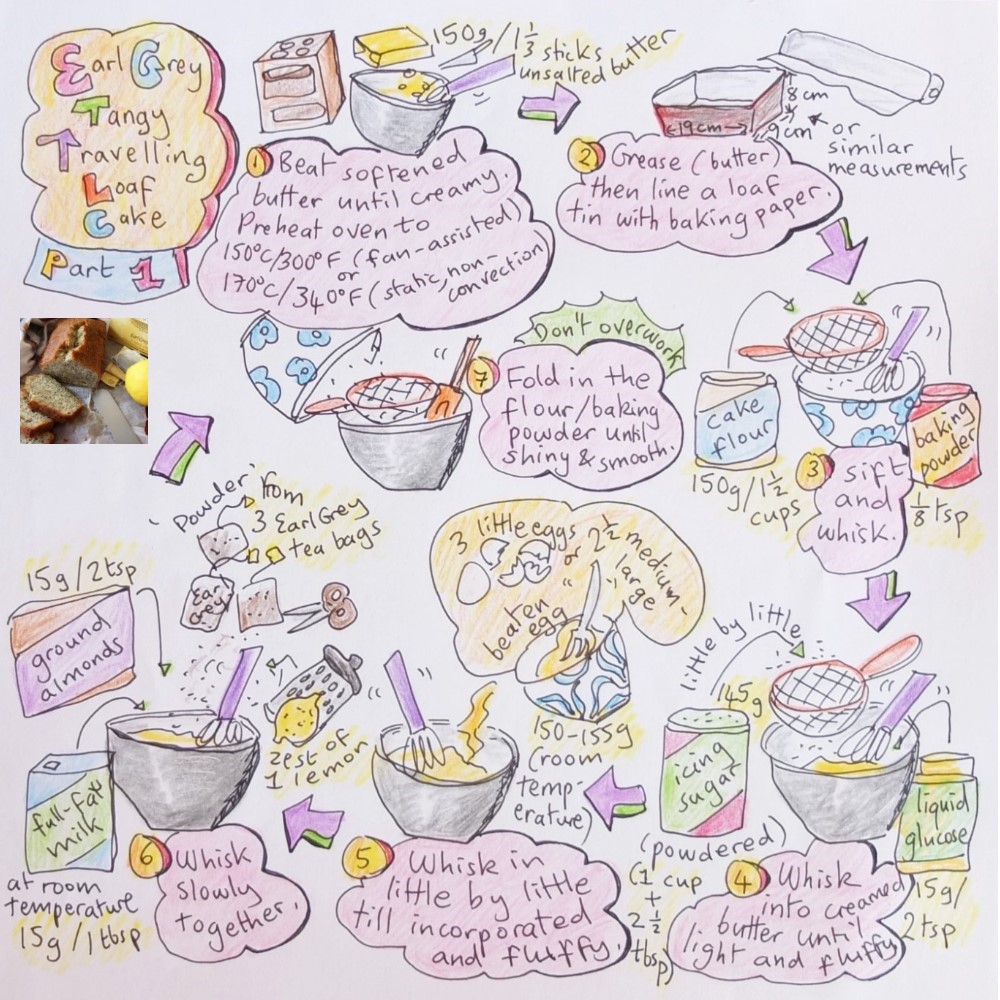 Earl Grey
Tangy
Travelling
Loaf
Cake
Part 1
150g/1⅓ sticks
unsalted butter
1 Beat softened
butter until creamy.
Preheat oven to
150°C/300°F (fan-assisted)
or
170°C/340°F (static, non-
convection)
8cm
19cm
9cm
or
similar
measurements
2 Grease (butter)
then line a loaf
tin with baking paper.
cake
flour
150g/1½
cups
baking
powder
⅛ tsp
3 Sift
and
whisk.
little by little
145g
icing
sugar
(powdered)
(1 cup
+
2½
tbsp)
liquid
glucose
15g/
2tsp
4 Whisk
into creamed
butter until
light and fluffy
3 little eggs
or 2½ medium-
large
beaten
egg
150-155g
(room
temp-
erature)
5 Whisk in
little by little
till incorporated
and fluffy.
15g/2tsp
ground
almonds
powder from
3 Earl Grey
tea bags
Earl
Grey
zest of
1 lemon
full-fat
milk
at room
temperature
15g/1tbsp
6 Whisk
slowly
together.
Don't overwork
7 Fold in the
flour/baking
powder until
shiny & smooth.